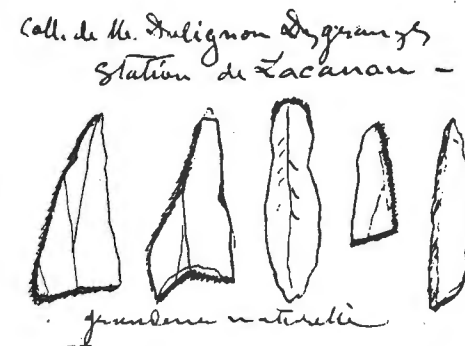 Coll. de M. Dulignon Desgranges
Station de Lacanau –
grandeur naturelle